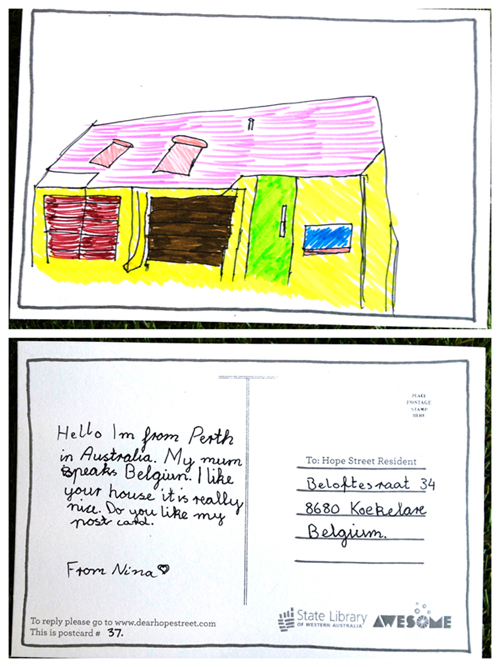 Hello Im from Perth
in Australia. My mum
speaks Belgiun. I like
your house it is really
nice. Do you like my
post card.
From Nina
To reply please go to www.dearhopestreet.com
This is postcard # 37.
PLACE
POSTAGE
STAMP
HERE
To: Hope Street Resident
Beloftesraat 34
8680 Koekelare
Belgium.
State Library
OF WESTERN AUSTRALIA
AWESOME